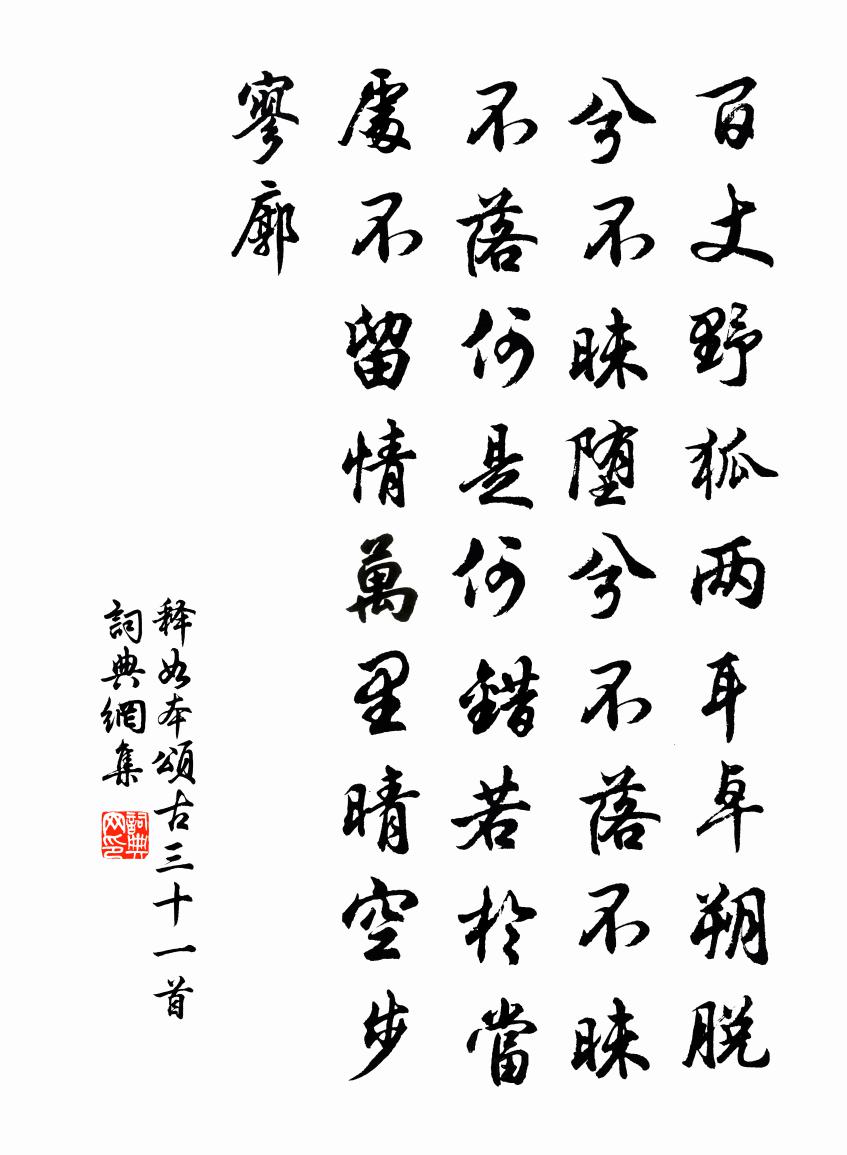 百丈野狐两耳卓朔脱
兮不昧堕兮不落不昧
不落何是何錯若於當
處不留情萬里晴空步
寥廓
释如本頌古三十一首
詞典網集
詞典网印